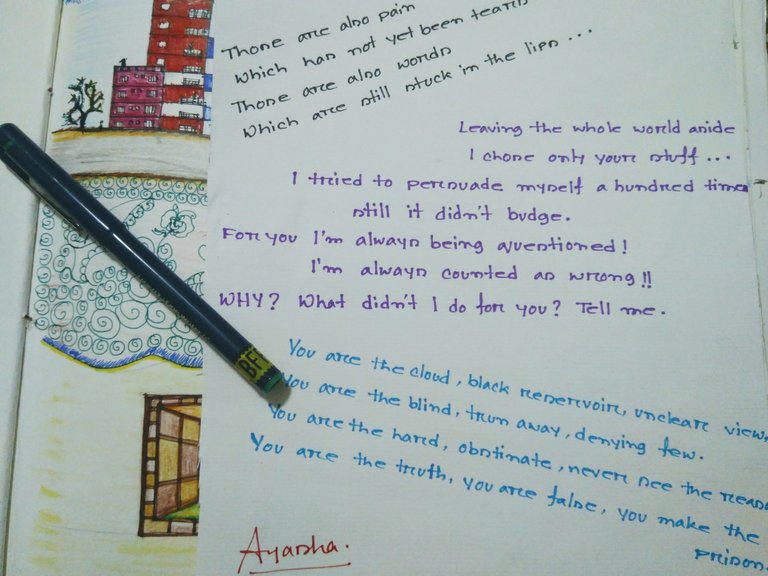 Those are also pain
Which has not yet been tears
Those are also words
Which are still stuck in the lips ...
Leaving the whole world aside
I chose only your stuff ...
I tried to persuade myself a hundred times
still it didn't budge.
For you I'm always being questioned!
I'm always counted as wrong!!
WHY? What didn't I do for you? Tell me.
You are the cloud, black reservoir, unclear view,
You are the blind, trun away, denying few.
You are the hard, obstinate, never see the reaso
You are the truth, you are false, you make the
prison.
Ayarsha.